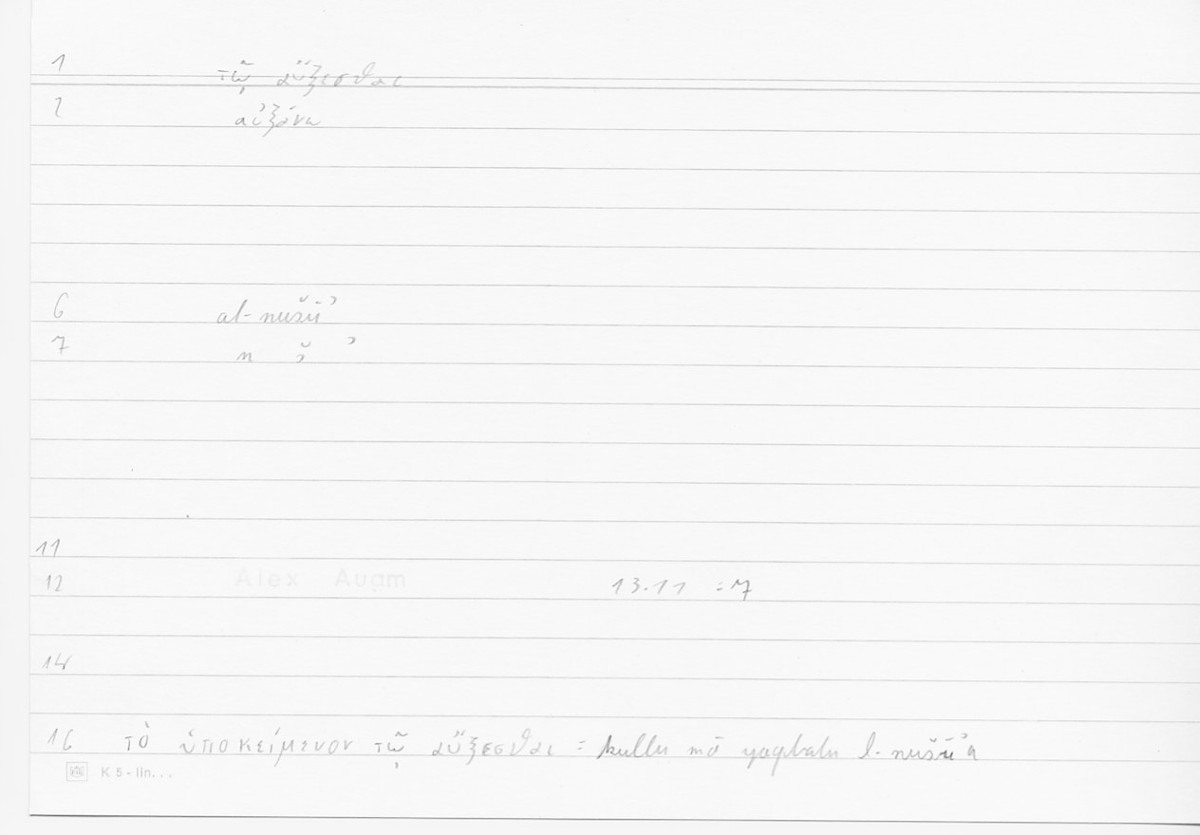 1 τῷ αὔξεσθαι
2 αὐξάνω
6 al-nušūʾ
7 n š ʾ
11
12 Alex Augm 13.11 = 7
14
16 τὸ ὑποκείμενον τῷ αὔξεσθαι = kullu mā yaqbalu l-nušūʾa
K 5 - lin...